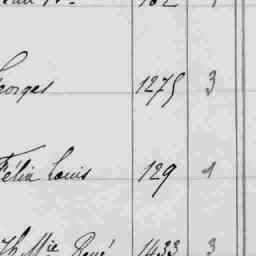 162 1
eorges 1275 3
Félix Louis 129 1
Th Mie René 1433 3